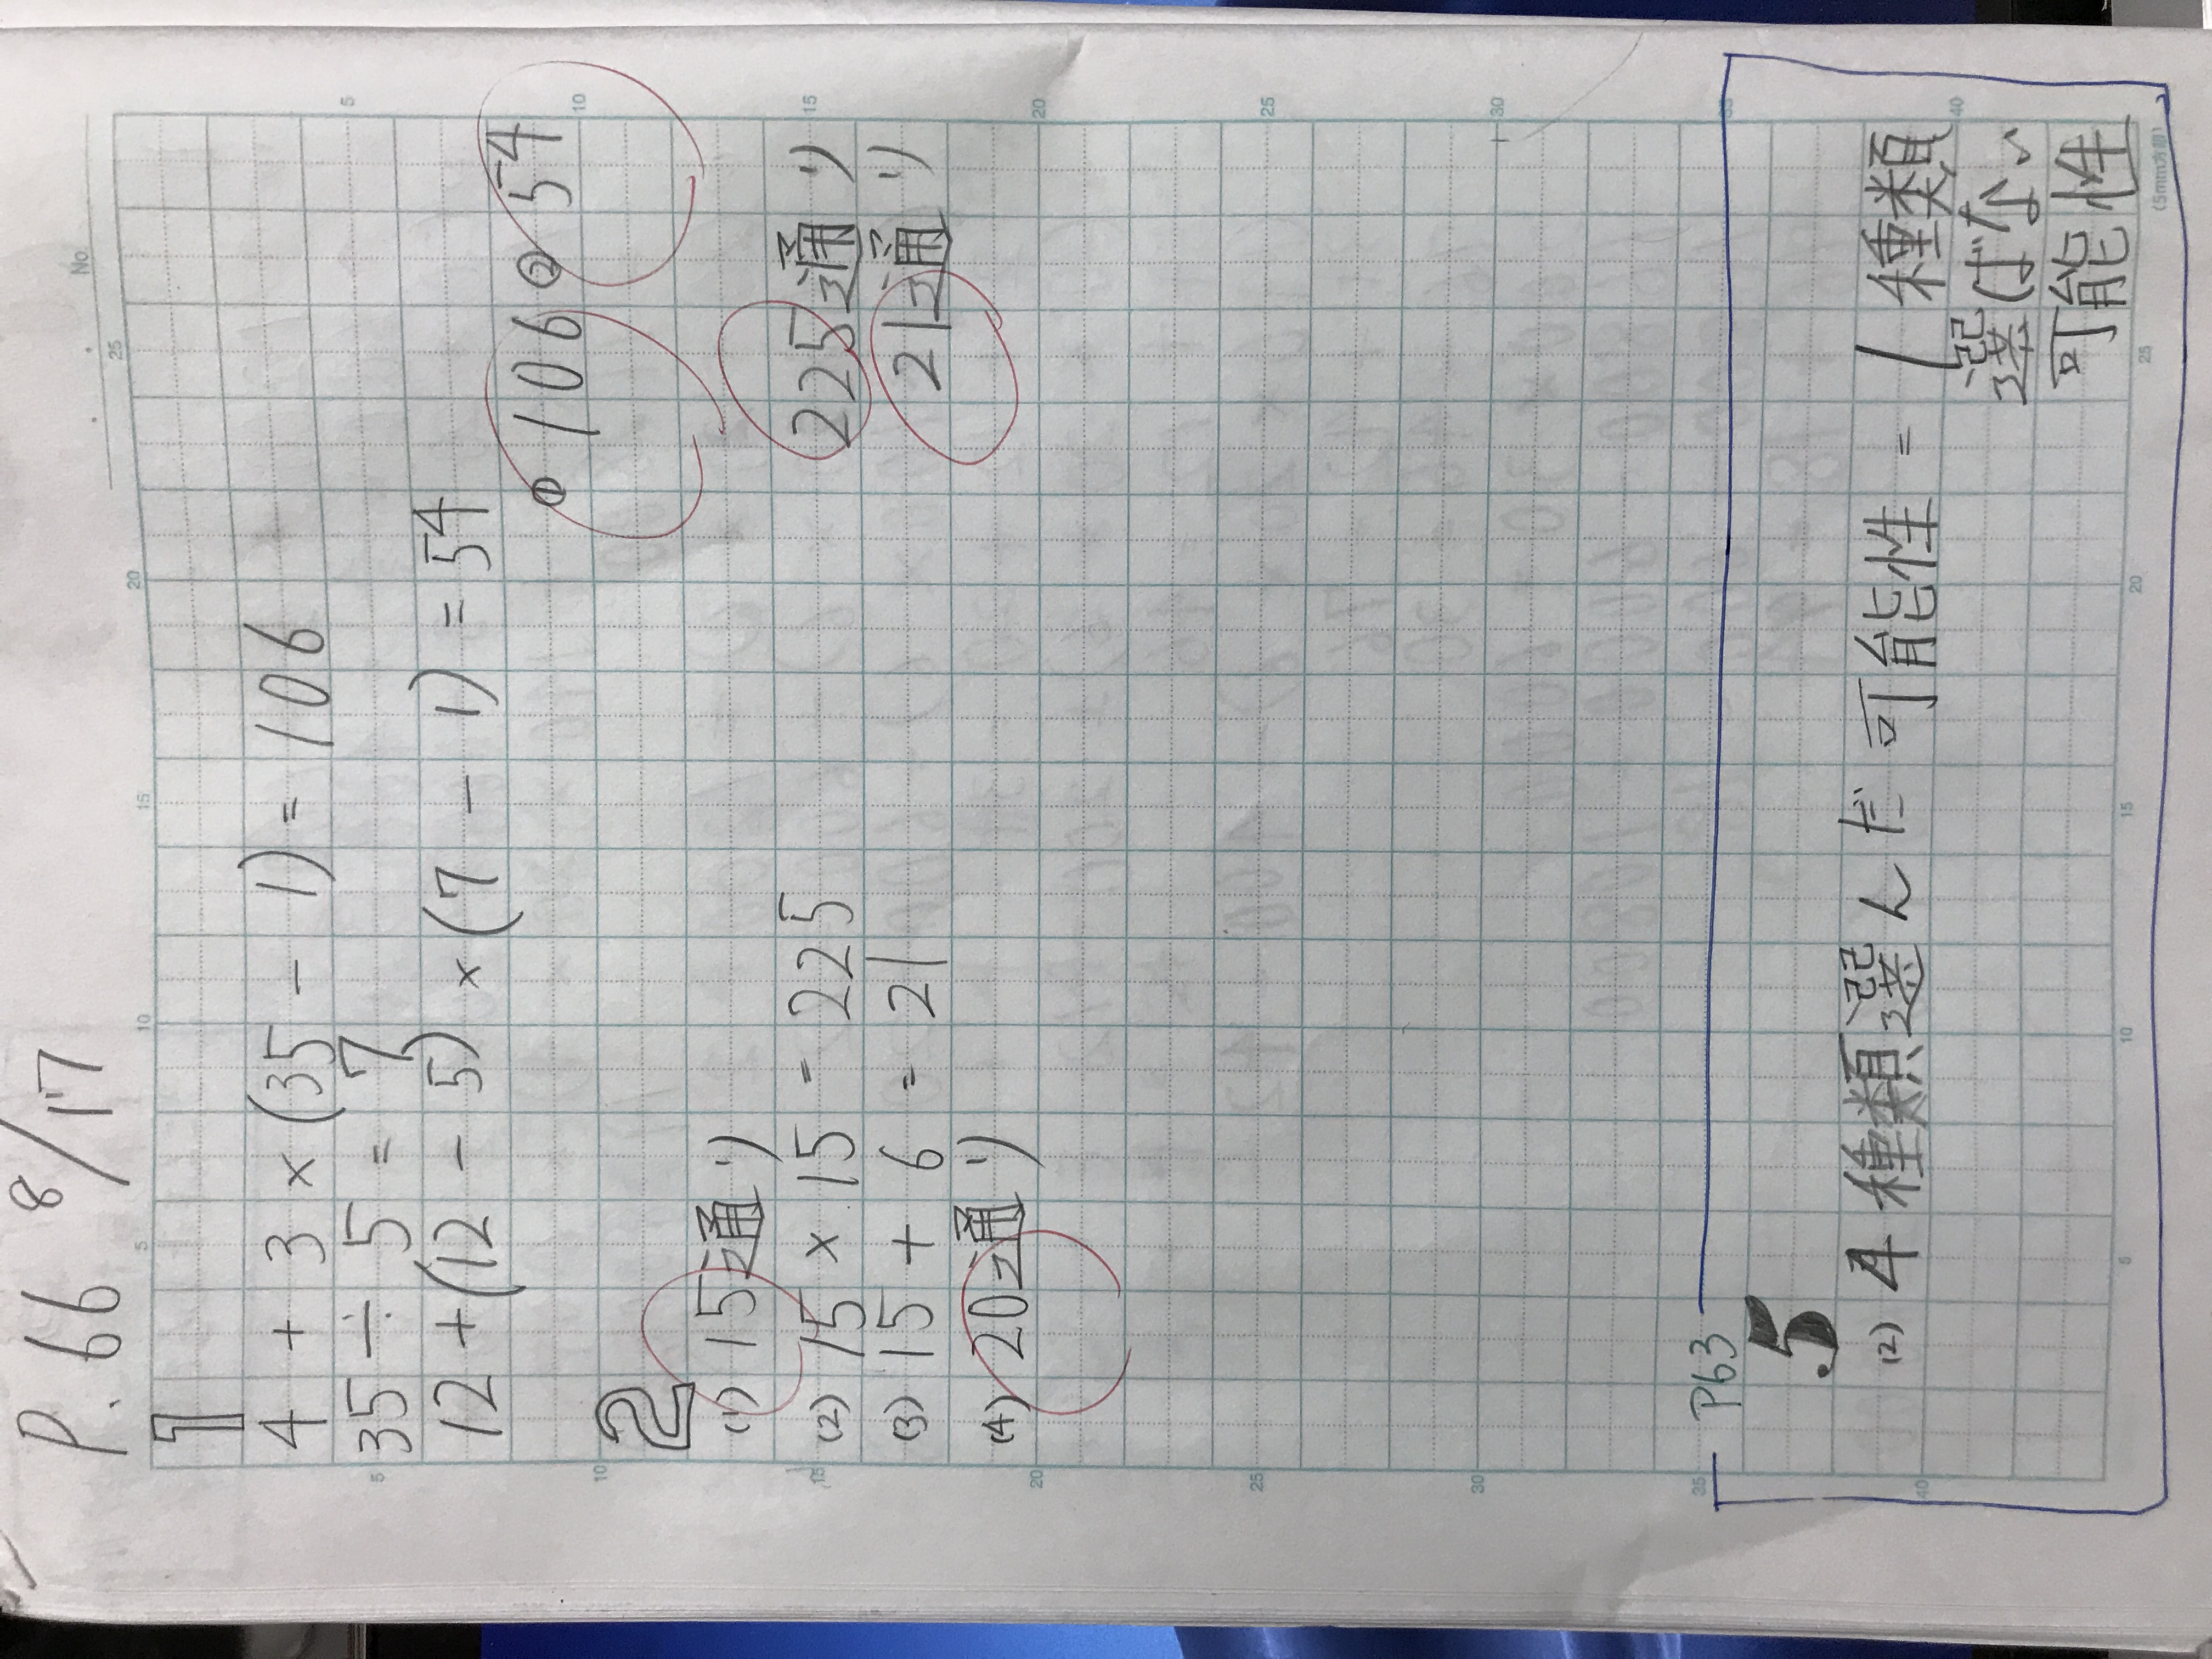 No
P. 66 8/17
1
4 + 3 × (35 - 1) = 106
35 ÷ 5 = 7
12 + (12 - 5) × (7 - 1) = 54
① 106 ② 54
2
(1) 15通り
(2) 15 × 15 = 225 225通り
(3) 15 + 6 = 21 21通り
(4) 20通り
P63
5
(2) 4種類選んだ可能性 = 1種類
選ばない
可能性
(5mm方眼)